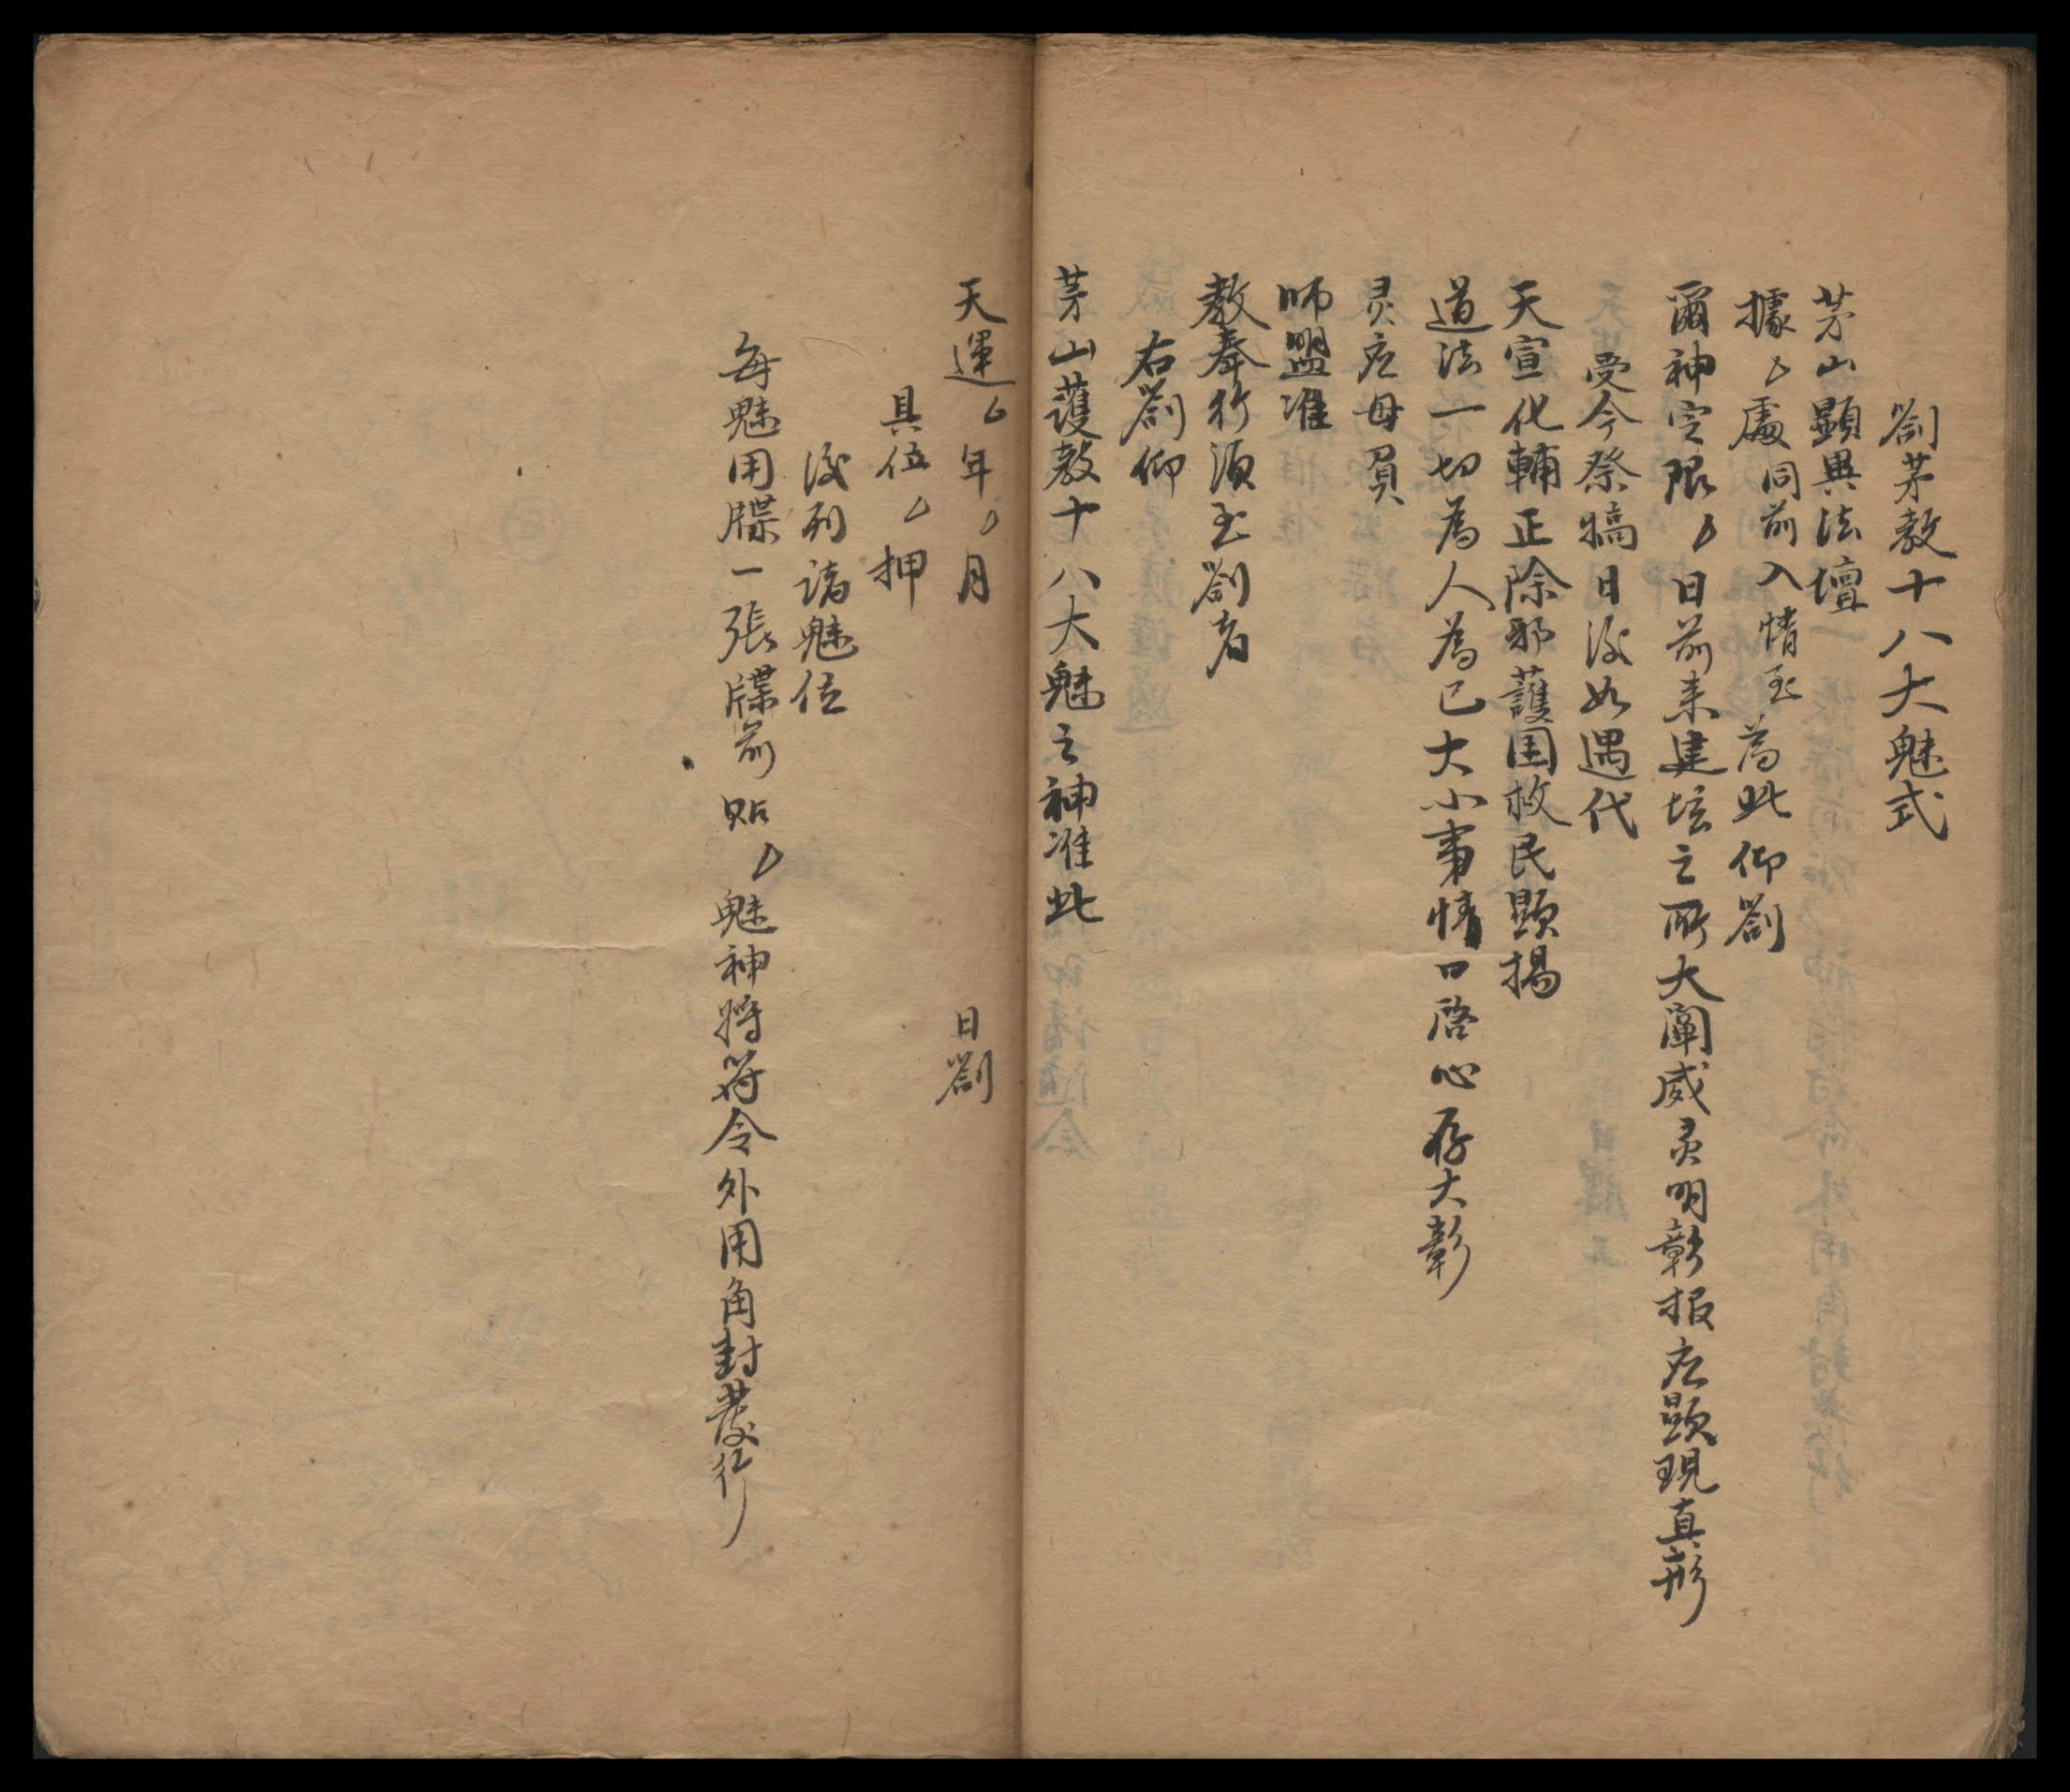 劄茅教十八大魅式
茅山顯異法壇
據厶處同前入情至為此仰劄
爾神定限厶日前来建坛之所大闡威灵明彰报应顕現真形
受今祭犒日後如遇代
天宣化輔正除邪護国救民顕揚
道法一切為人為己大小事情口啓心存大彰
灵应毋負
師盟准
教奉行須至劄者
右劄仰
茅山護教十八大魅之神准此
天運厶年厶月日劄
具位厶押
後列諸魅位
每魅用牒一張牒前貼厶魅神将符令外用角封發行